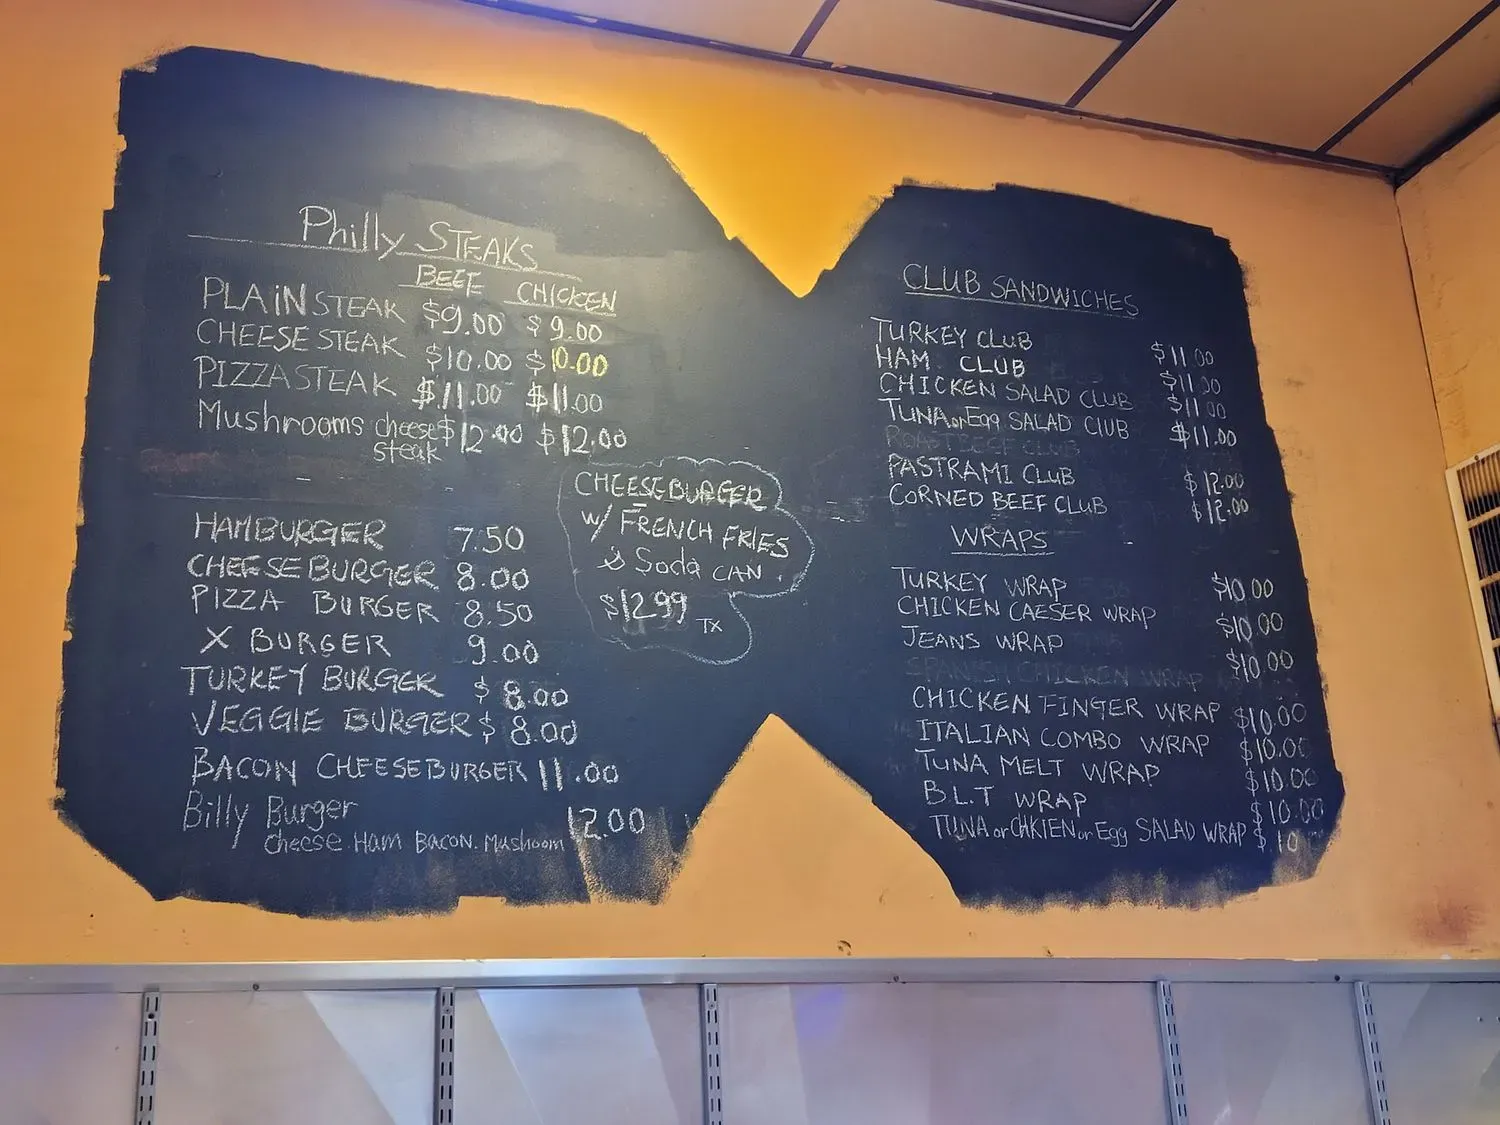 Philly STEAKS
BEEF CHICKEN
PLAIN STEAK $9.00 $9.00
CHEESE STEAK $10.00 $10.00
PIZZA STEAK $11.00 $11.00
Mushrooms cheese steak $12.00 $12.00
HAMBURGER 7.50
CHEESEBURGER 8.00
PIZZA BURGER 8.50
X BURGER 9.00
TURKEY BURGER $8.00
VEGGIE BURGER $8.00
BACON CHEESEBURGER 11.00
Billy Burger 12.00
cheese Ham BACON. Mushroom
CHEESEBURGER
w/ FRENCH FRIES
& Soda CAN
$12.99 TX
CLUB SANDWICHES
TURKEY CLUB $11.00
HAM CLUB $11.00
CHICKEN SALAD CLUB $11.00
TUNA or Egg SALAD CLUB $11.00
ROAST BEEF CLUB
PASTRAMI CLUB $12.00
CORNED BEEF CLUB $12.00
WRAPS
TURKEY WRAP $10.00
CHICKEN CAESER WRAP $10.00
JEANS WRAP $10.00
SPANISH CHICKEN WRAP
CHICKEN FINGER WRAP $10.00
ITALIAN COMBO WRAP $10.00
TUNA MELT WRAP $10.00
B.L.T WRAP $10.00
TUNA or CHKIEN or Egg SALAD WRAP $.10